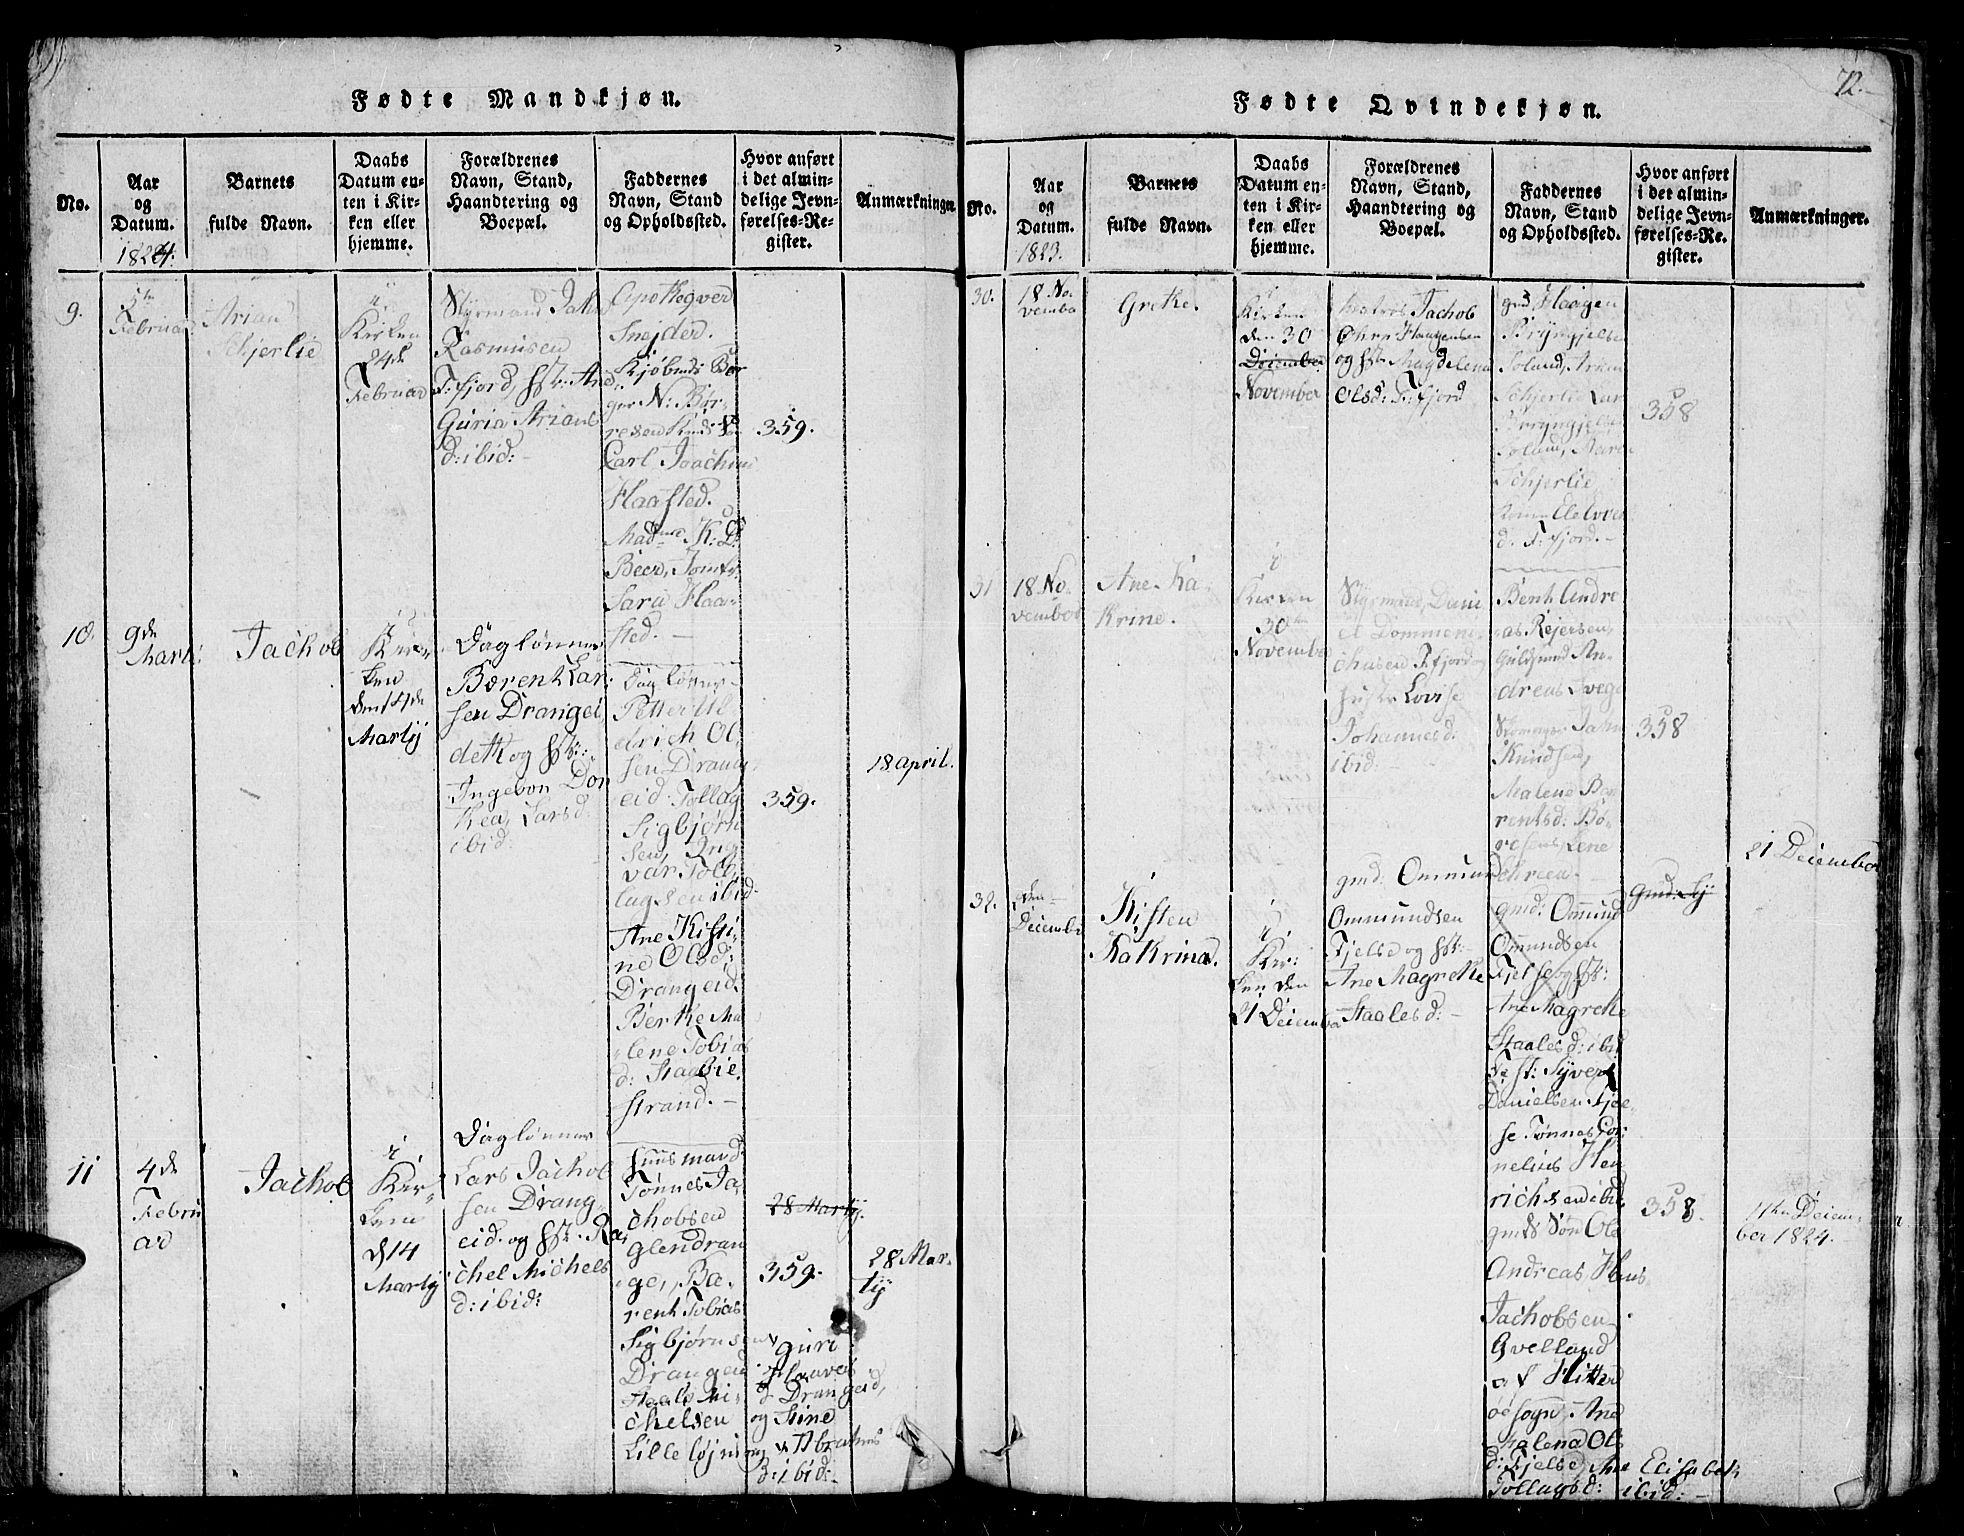 72.
Fødte Mandkjøn.
No.
Aar
og
Datum.
1824.
Barnets
fulde Navn.
Daabs
Datum en-
ten i Kir-
ken eller
hjemme.
Forældrenes
Navn, Stand,
Haandtering og
Boepæl.
Faddernes
Navn, Stand
og Opholdssted.
Hvor anført
i det almin-
delige Jevn-
førelses-Re-
gister.
Anmærkninger
9.
5te
Februar
Arian
Schjerlie
i
Kirken
24de
Februar
Styrmand
Rasmusen
F:fjord, hst: Ane
Guria Arians
d: ibid:
Apotheqver
Snejder.
Kjøbmds Bør
ger N: Bør-
resen
Carl Joachim
Haasted.
Madme K: D:
Beer, Jomfr.
Sara Haa-
sted.
359.
10.
9de
Marti
Jachob
i
Kir-
ken
den 14de
Martij
Daglønner
Bærent Lar
sen Drangei
dett og hst:
Ingebor Dor
thea, Larsd:
ibid:
Daglønner
Petter Ul
drich Ol
sen Drang
eid: Tollag
Sigbjørn
sen, Ing
var Toll
lagsen ibid
Ane Kisti-
ne Olsd:
Drangeid.
Berthe Ma
lene Tobias
d: Staalsie
strand.
359.
18 april.
11
4de
Febru
ar
Jachob
i
Kir-
ken
d 14
Martij
Daglønner
Lars Jachob
sen Drang
eid. og hst. Ra
chel Michels
d: ibid:
huusmand
Tønnes Ja
chobsen
Glendran
ge, Bæ-
rent Tobias
Sigbjørnsen
Drangeid
Staals Mi-
chelsen
Lille løjning
28 Martij.
359.
Guri
Haaver
d Drangeid,
og Stine
Abrahams
D: ibid:
28 Mar-
tij
Fødte Qvindekjøn.
No.
Aar
og
Datum.
1823.
Barnets
fulde Navn.
Daabs
Datum en-
ten i Kir-
ken eller
hjemme.
Forældrenes
Navn, Stand,
Haandtering og
Boepæl.
Faddernes
Navn, Stand
og Opholdssted.
Hvor anført
i det almin-
delige Jevn-
førelses-Re-
gister.
Anmærkninger.
30.
18 No-
vembe
Grethe.
i
Kirken
den 30
Deiember
November
Matros Jachob
Chrn Haagensen
og hst: Magdelena
Olsd: F:fjord
gmd Haagen
Bryngjelse
Soland, Arian
Schjerlie Lar
Bryngjelse
Soland, Maren
Schjerlie
d. F:fjord.
358
31
18 No-
vember
Ane Ka-
thrine.
i
Kirken
30te
November
Styrmand, Dani
el Dommeni
chusen F:fjord og
hustr Lovise
Johannesd:
ibid.
Benth Andre
as Rejersen,
Guldsmd An-
dreas Tveg
Jahn
Knudsen,
Malene Bæ
rentsd: Bø-
resens, Lene
Chreea.
358
21 Deiember
32.
Deiembe
Kisten
Kathrina.
i
Kir-
ken den
21 Deiembe
gmd: Ommund
Ommundsen
Fjelse og hst:
Ane Magrethe
Staalesd:
gmd: Ommund
Ommundsen
Fjelse og hst:
Ane Magrethe
Staalesd: ibid
Test: Syvert
Danielsen Fjel-
se Tønnes Cor-
nelius Hen
richsen ibid
gmds Søn Ole
Andreas, Hans
Jachobsen
Qvelland
af Hitter
øe sogn, Ane
halena Ols
d: Fjelse, Ane Elisabeth
Tollagsd: ibid:
gmd: Sy
358.
11ten Deiem-
ber 1824.